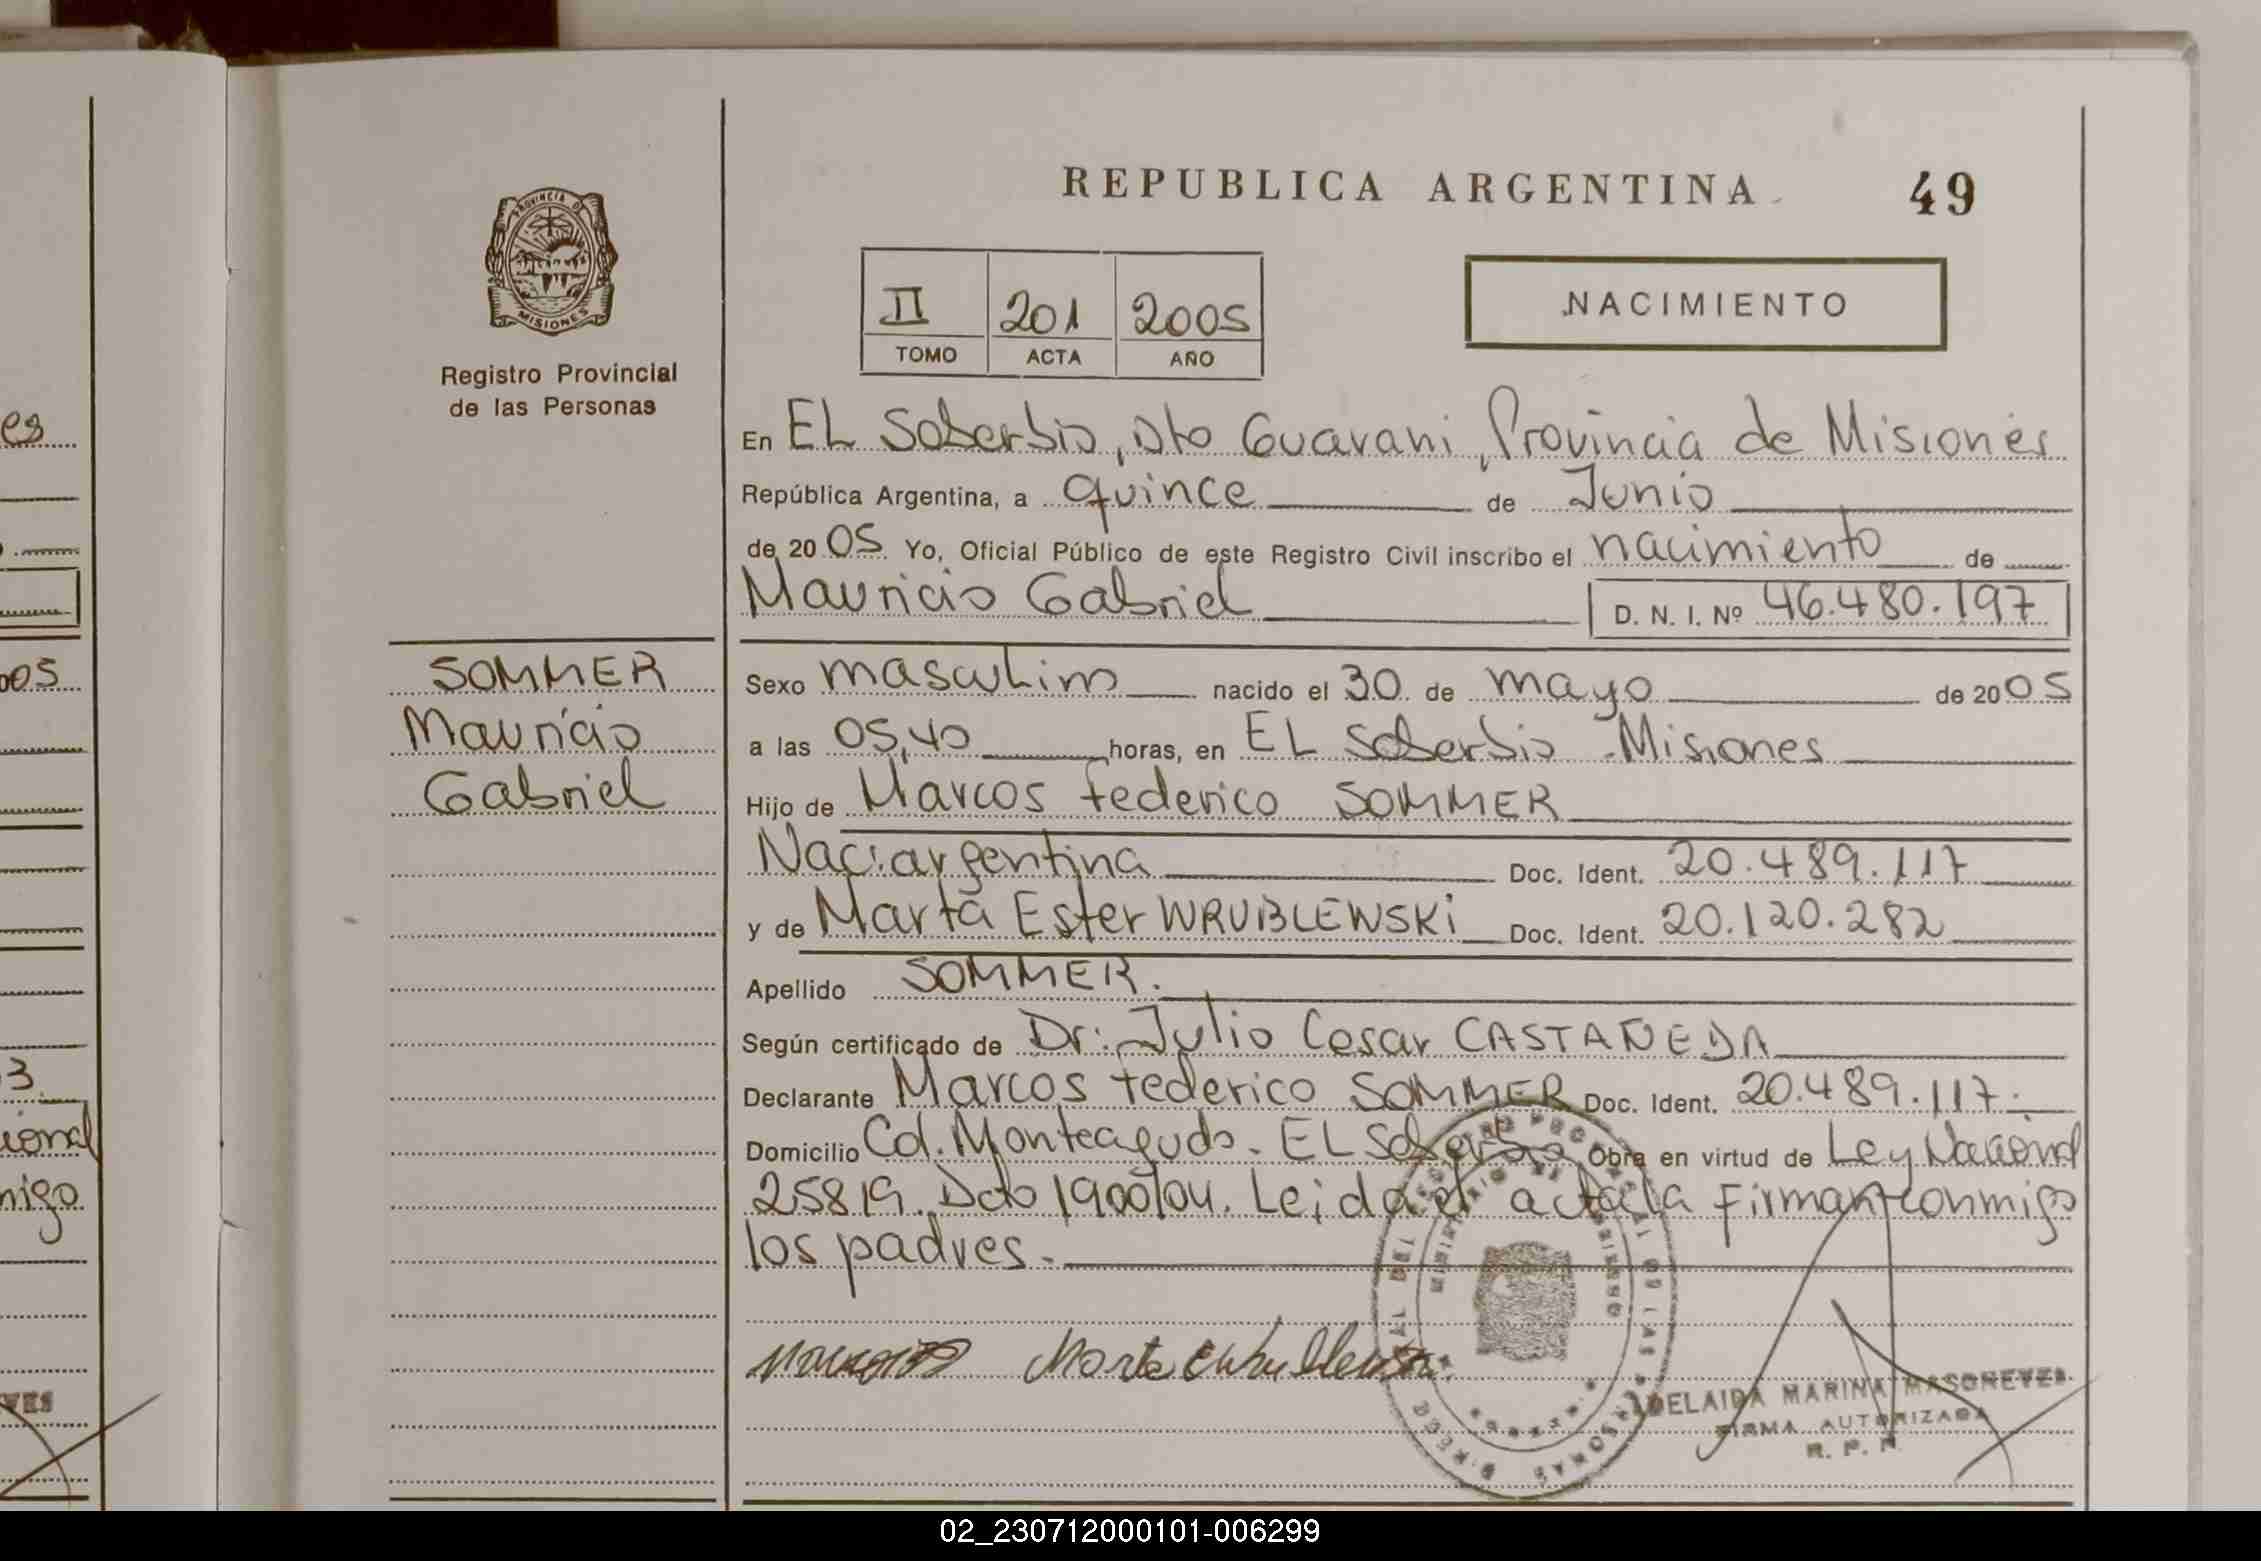 es
005
3
ional
migo
VES
PROVINCIA DE
MISIONES
Registro Provincial
de las Personas
SOMMER
Mauricio
Gabriel
REPUBLICA ARGENTINA
49
II 201 2005
TOMO ACTA AÑO
NACIMIENTO
En EL Soberbio, Dto Guarani, Provincia de Misiones
República Argentina, a quince de Junio
de 2005 Yo, Oficial Público de este Registro Civil inscribo el nacimiento de
Mauricio Gabriel D. N. I. Nº 46.480.197
Sexo masculino nacido el 30 de mayo de 2005
a las 05,40 horas, en EL Soberbio - Misiones
Hijo de Marcos Federico SOMMER
Nac: argentina Doc. Ident. 20.489.117
y de Marta Ester WRUBLEWSKi Doc. Ident. 20.120.282
Apellido SOMMER.
Según certificado de Dr: Julio Cesar CASTAÑEDA
Declarante Marcos Federico SOMMER Doc. Ident. 20.489.117.
Domicilio Col. Monteagudo - EL Soberbio Obra en virtud de Ley Nacional
25819. Dcto 1900/04. Leida el acta la Firman conmigo
los padres.-
ADELAIDA MARINA MASONEVES
FIRMA AUTORIZADA
R. P. P.
02_230712000101-006299